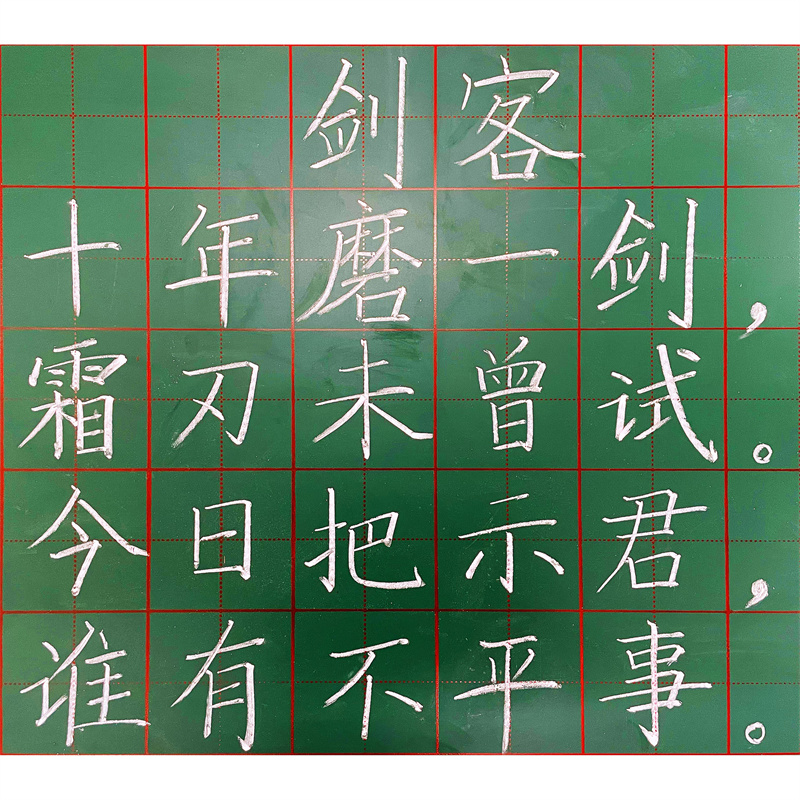 剑客
十年磨一剑，
霜刃未曾试。
今日把示君，
谁有不平事。